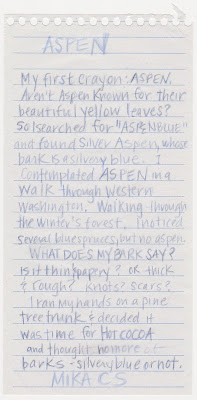 ASPEN
My first Crayon: ASPEN.
Aren't Aspen known for their
beautiful yellow leaves?
So I searched for "ASPEN BLUE"
and found Silver Aspen, whose
bark is a silvery blue. I
Contemplated ASPEN in a
walk through Western
Washington. Walking through
the winter's forest, I noticed
several blue spruces, but no aspen.
WHAT DOES MY BARK SAY?
Is it thin & papery? or thick
& rough? Knots? Scars?
I ran my hands on a pine
tree trunk & decided it
was time for HOT COCOA
and thought no more of
barks - silvery blue or not.
MIKA CS